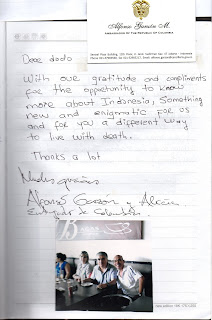 Alfonso Garzón M.
AMBASSADOR OF THE REPUBLIC OF COLOMBIA
Dear dodo
With our gratitude and compliments
for the opportunity to know
more about Indonesia, Something
new and enigmatic for us
and for you a different way
to live with death.
Thanks a lot
Muchas gracias
Alfonso Garzón y Alicia
Embajada de Colombia